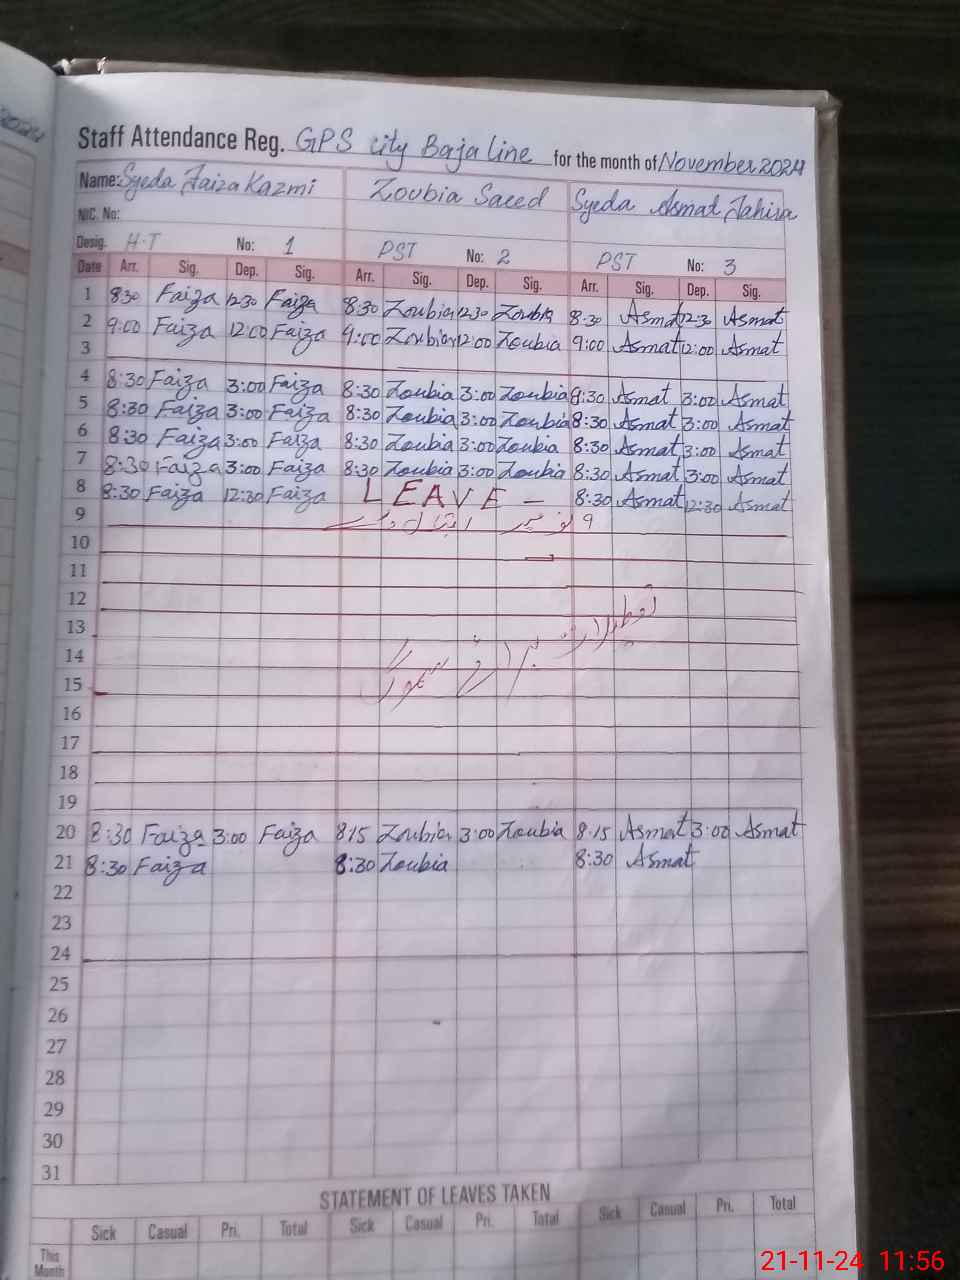 Staff Attendance Reg. GPS city Baja line for the month of November 2024
Name: Syeda Faiza Kazmi Zoubia Saeed Syeda Asmat Tahira
NIC. No:
Desig. H.T No: 1 PST No: 2 PST No: 3
Date Arr. Sig. Dep. Sig. Arr. Sig. Dep. Sig. Arr. Sig. Dep. Sig.
1 8:30 Faiza 12:30 Faiza 8:30 Zoubia 12:30 Zoubia 8:30 Asmat 12:30 Asmat
2 9:00 Faiza 12:00 Faiza 9:00 Zoubia 12:00 Zoubia 9:00 Asmat 12:00 Asmat
3
4 8:30 Faiza 3:00 Faiza 8:30 Zoubia 3:00 Zoubia 8:30 Asmat 3:00 Asmat
5 8:30 Faiza 3:00 Faiza 8:30 Zoubia 3:00 Zoubia 8:30 Asmat 3:00 Asmat
6 8:30 Faiza 3:00 Faiza 8:30 Zoubia 3:00 Zoubia 8:30 Asmat 3:00 Asmat
7 8:30 Faiza 3:00 Faiza 8:30 Zoubia 3:00 Zoubia 8:30 Asmat 3:00 Asmat
8 8:30 Faiza 12:30 Faiza LEAVE – 8:30 Asmat 12:30 Asmat
9 9 نومبر اقبال ڈے
10
11
12
13
14
15
16
17
18
19
20 8:30 Faiza 3:00 Faiza 8:15 Zoubia 3:00 Zoubia 8:15 Asmat 3:00 Asmat
21 8:30 Faiza 8:30 Zoubia 8:30 Asmat
22
23
24
25
26
27
28
29
30
31
STATEMENT OF LEAVES TAKEN
Sick Casual Pri. Total Sick Casual Pri. Total Sick Casual Pri. Total
This Month
21-11-24 11:56